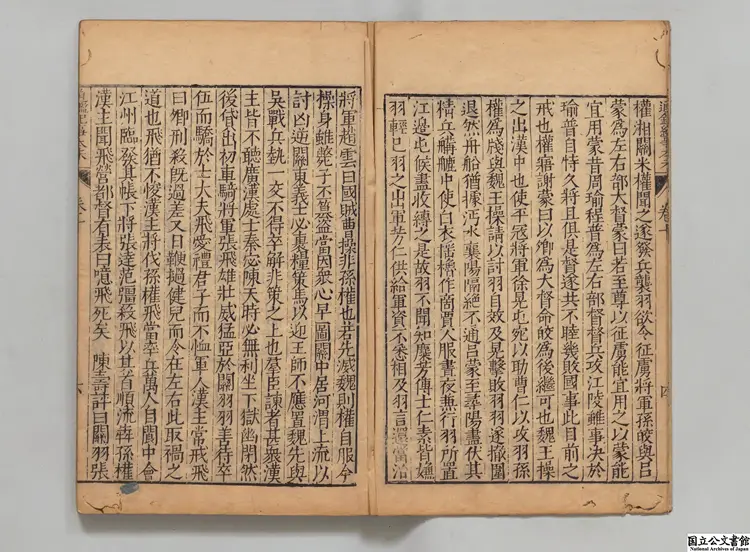 通鑑紀事本末 卷十
權湘關米權聞之遂發兵襲羽欲令征虜將軍孫皎與呂
蒙為左右部大督蒙曰若至尊以征虜能宜用之以蒙能
宜用蒙昔周瑜程普為左右部督督兵攻江陵雖事決於
瑜普自恃久將且俱是督遂共不睦幾敗國事此目前之
戒也權寤謝蒙曰以卿為大督命皎為後繼可也魏王操
之出漢中也使平寇將軍徐晃屯宛以助曹仁以攻羽孫
權為牋與魏王操請以討羽自效及晃擊敗羽羽遂撤圍
退然舟船猶據沔水襄陽隔絕不通呂蒙至尋陽盡伏其
精兵𦩷𦪇中使白衣搖櫓作商賈人服晝夜兼行羽所置
江邊屯候盡收縛之是故羽不聞知麋芳傅士仁素皆嫌
羽輕己羽之出軍芳仁供給軍資不悉相及羽言還當治
四
將軍趙雲曰國賊曹操非孫權也若先滅魏則權自服今
操身雖斃子丕篡盜當因眾心早圖關中居河渭上流以
討凶逆關東義士必裹糧策馬以迎王師不應置魏先與
吳戰兵埶一交不得卒解非策之上也羣臣諫者甚眾漢
主皆不聽廣漢處士秦宓陳天時必無利坐下獄幽閉然
後貸出初車騎將軍張飛雄壯威猛亞於關羽羽善待卒
伍而驕於士大夫飛愛禮君子而不恤軍人漢主常戒飛
曰卿刑殺既過差又日鞭撾健兒而令在左右此取禍之
道也飛猶不悛漢主將伐孫權飛當率兵萬人自閬中會
江州臨發其帳下將張達范彊殺飛以其首順流奔孫權
漢主聞飛營都督有表曰噫飛死矣 陳壽評曰關羽張